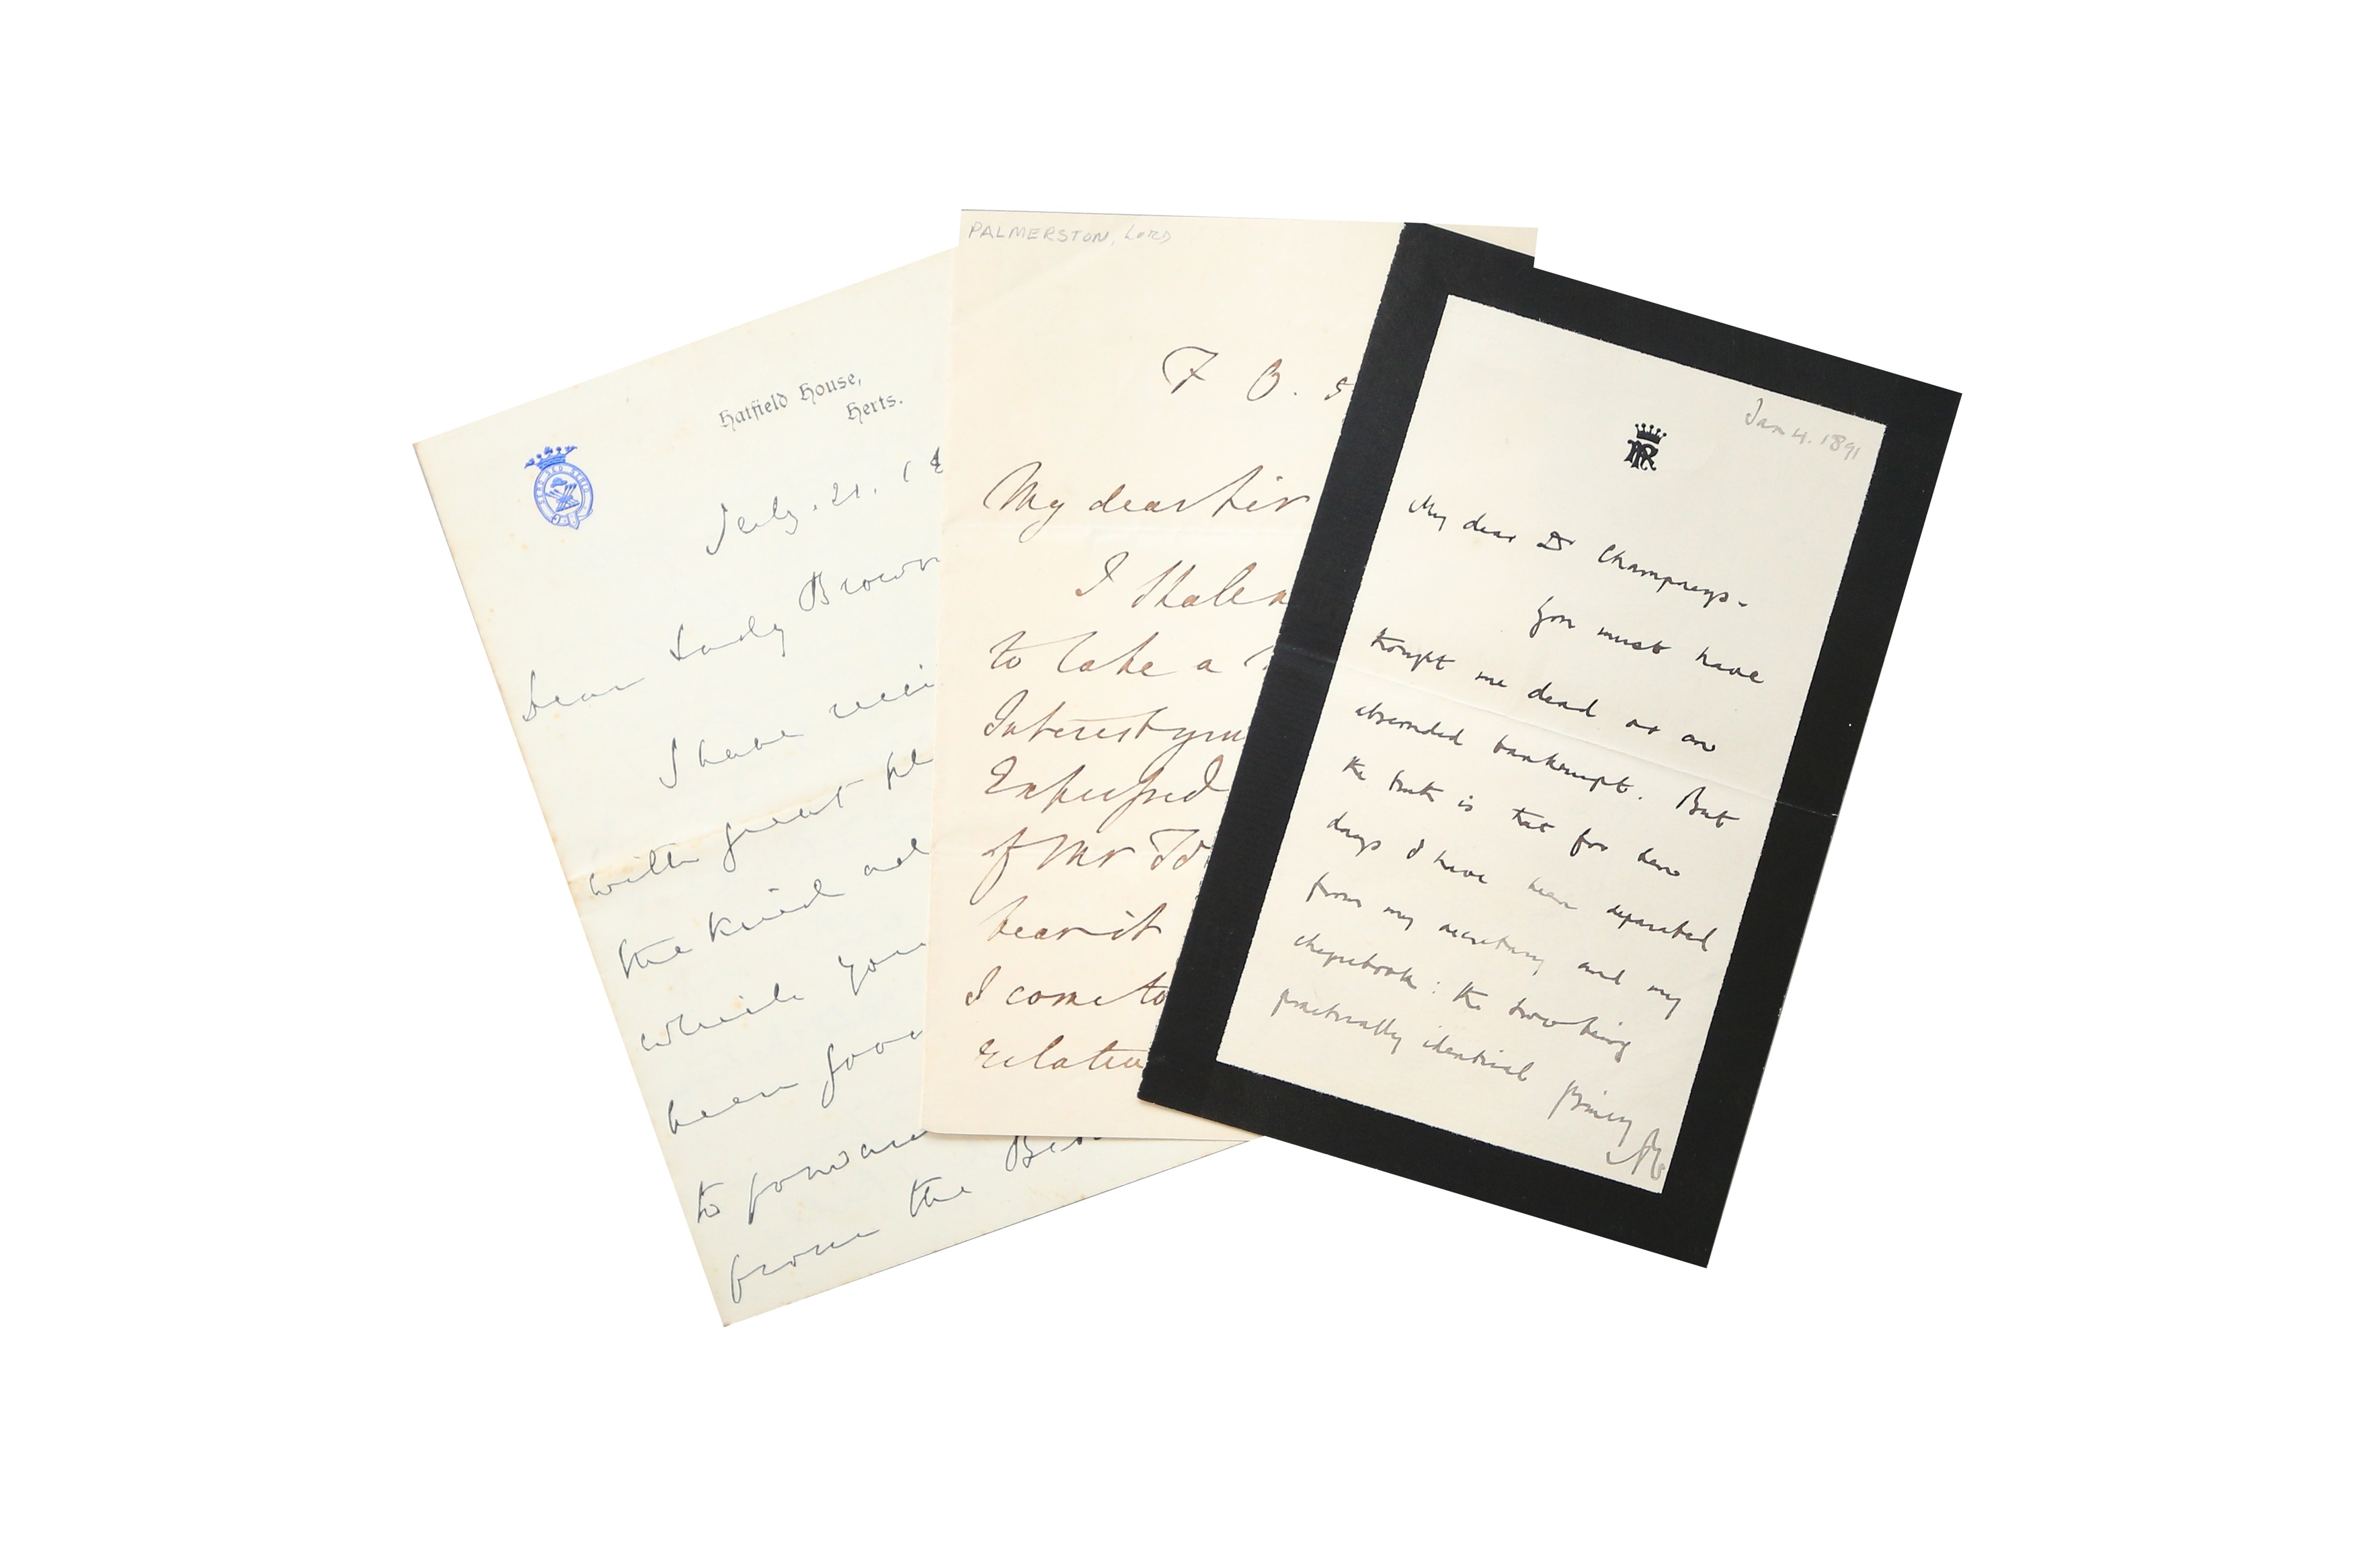 Hatfield House,
Herts.
SERO SED SERIO
July. 21. 18
Dear Lady Brown
I have recei
with great pl
the kind ad
which you
been good
to forward
from the
PALMERSTON, LORD
F O. 5
My dear Sir
I shall
to take a
Interest you
Expressed
of Mr
bear it
I come to
relatu
Jan 4. 1891
My dear Dr Champneys-
You must have
thought me dead or an
absconded bankrupt. But
the truth is that for two
days I have been separated
from my secretary and my
chequebook: the two being
practically identical